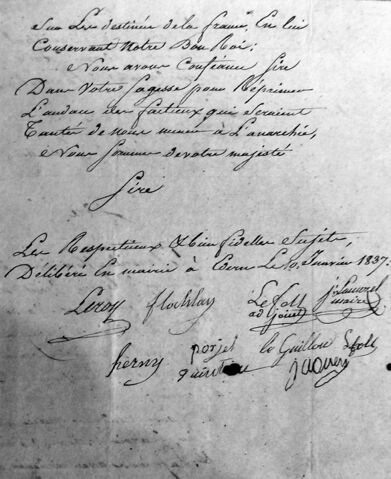 Sur Les destinée de la france, En lui
Conservant Notre Bon Roi;
Nous avons Confiance Sire
Dans Votre Sagesse pour Réprimer
L'audace des factieux qui seraient
Tenté de nous mener à L'anarchie,
Nous Somme de votre majesté
Sire
Les Respectueux & bien fidelles Sujets,
Délibéré En mairie à Le 10 Janvier 1837.
Leroy flochlay Le foll
adjoint maire
herny porjet le Guillou Le foll